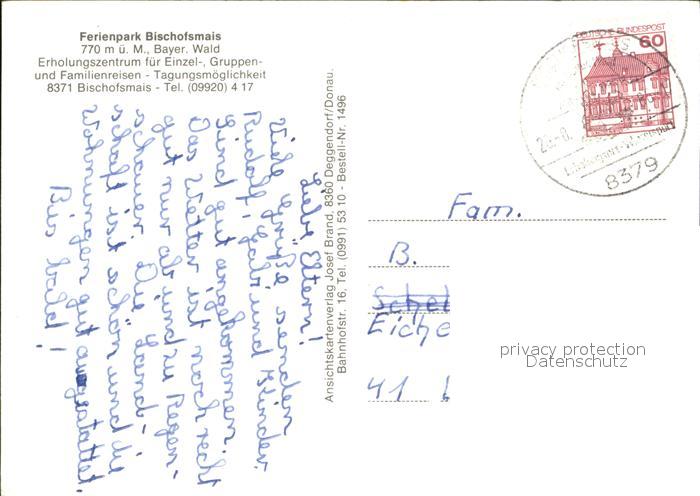 Ferienpark Bischofsmais
770 m ü. M., Bayer. Wald
Erholungszentrum für Einzel-, Gruppen-
und Familienreisen - Tagungsmöglichkeit
8371 Bischofsmais - Tel. (09920) 4 17
Liebe Eltern!
Viele Grüße senden
Rudolf, Gerd und Kinder.
Sind gut angekommen.
Das Wetter ist noch recht
gut nur ab und zu Regen-
schauer. Die Land-
schaft ist schön und die
Wohnungen gut ausgestattet.
Bis bald!
Ansichtskartenverlag Josef Brand, 8360 Deggendorf/Donau,
Bahnhofstr. 16, Tel. (0991) 53 10 - Bestell-Nr. 1496
DEUTSCHE BUNDESPOST
60
8379
Fam.
B.
Schel
Eiche
41
privacy protection
Datenschutz